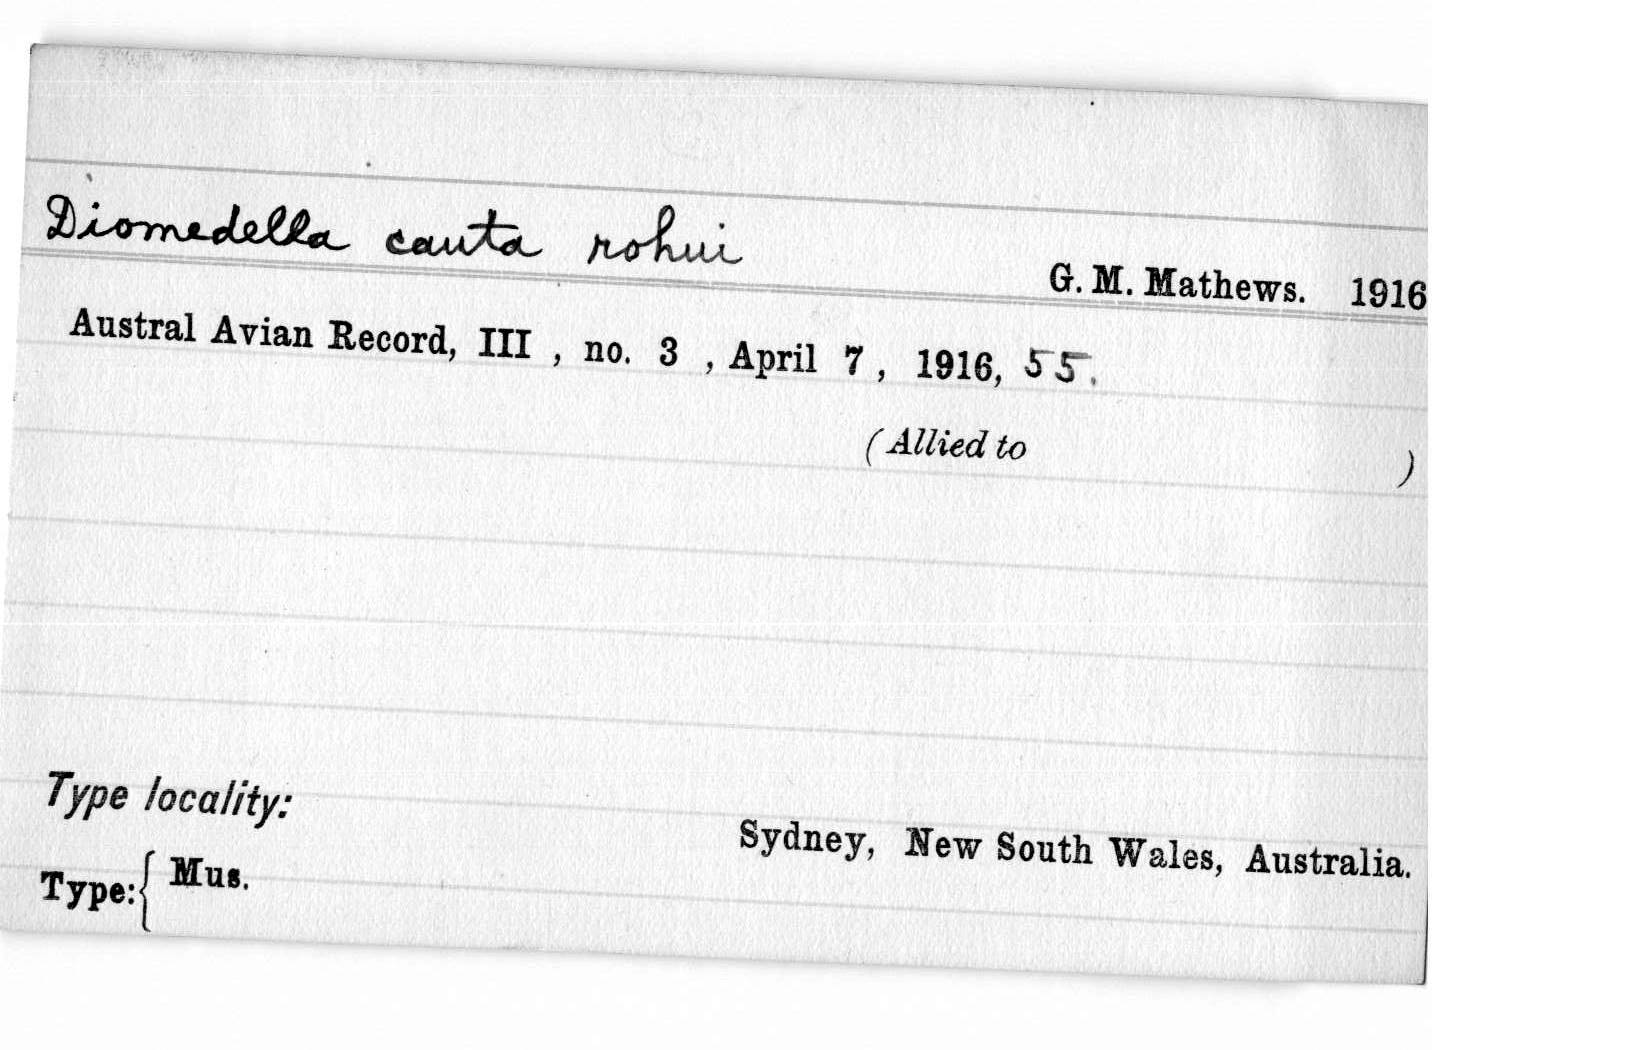 Diomedella cauta rohui
G. M. Mathews. 1916
Austral Avian Record, III , no. 3 , April 7 , 1916, 55.
(Allied to )
Type locality:
Sydney, New South Wales, Australia.
Type: { Mus.